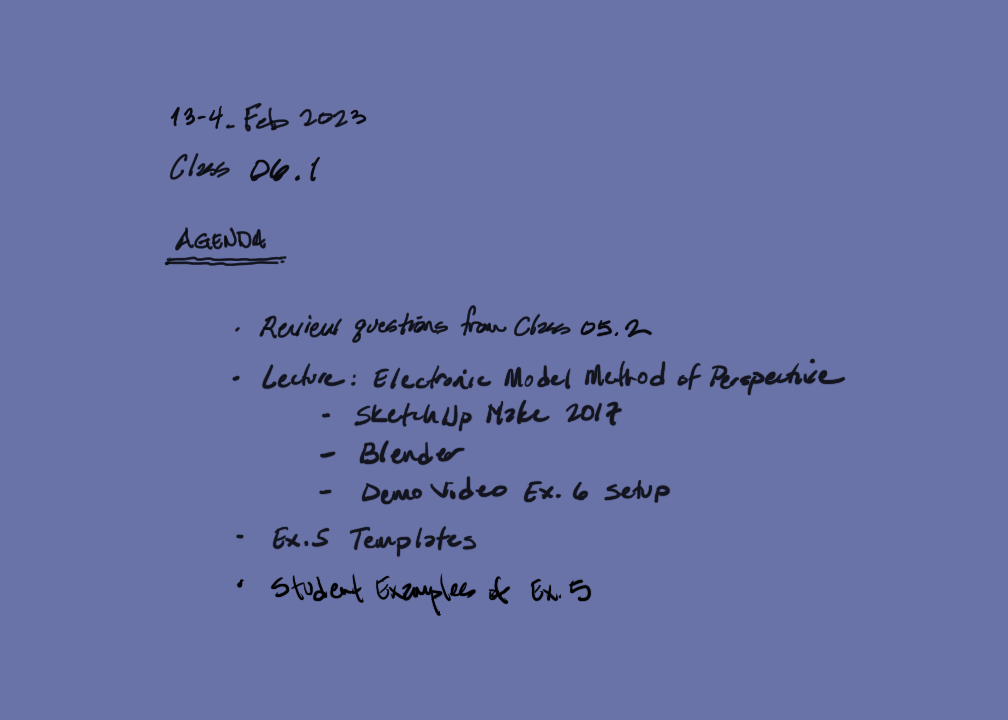 13-4_Feb 2023
Class 06.1
AGENDA
· Review questions from Class 05.2
· Lecture: Electronic Model Method of Perspective
- SketchUp Make 2017
- Blender
- Demo Video Ex. 6 setup
· Ex.5 Templates
· Student Examples of Ex. 5